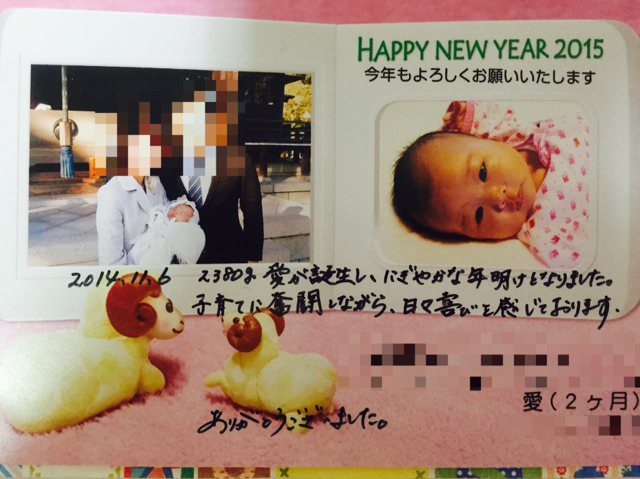 HAPPY NEW YEAR 2015
今年もよろしくお願いいたします
2014.11.6 2380g 愛が誕生し、にぎやかな年明けとなりました。
子育てに奮闘しながら、日々喜びを感じております。
愛(2ヶ月)
ありがとうございました。